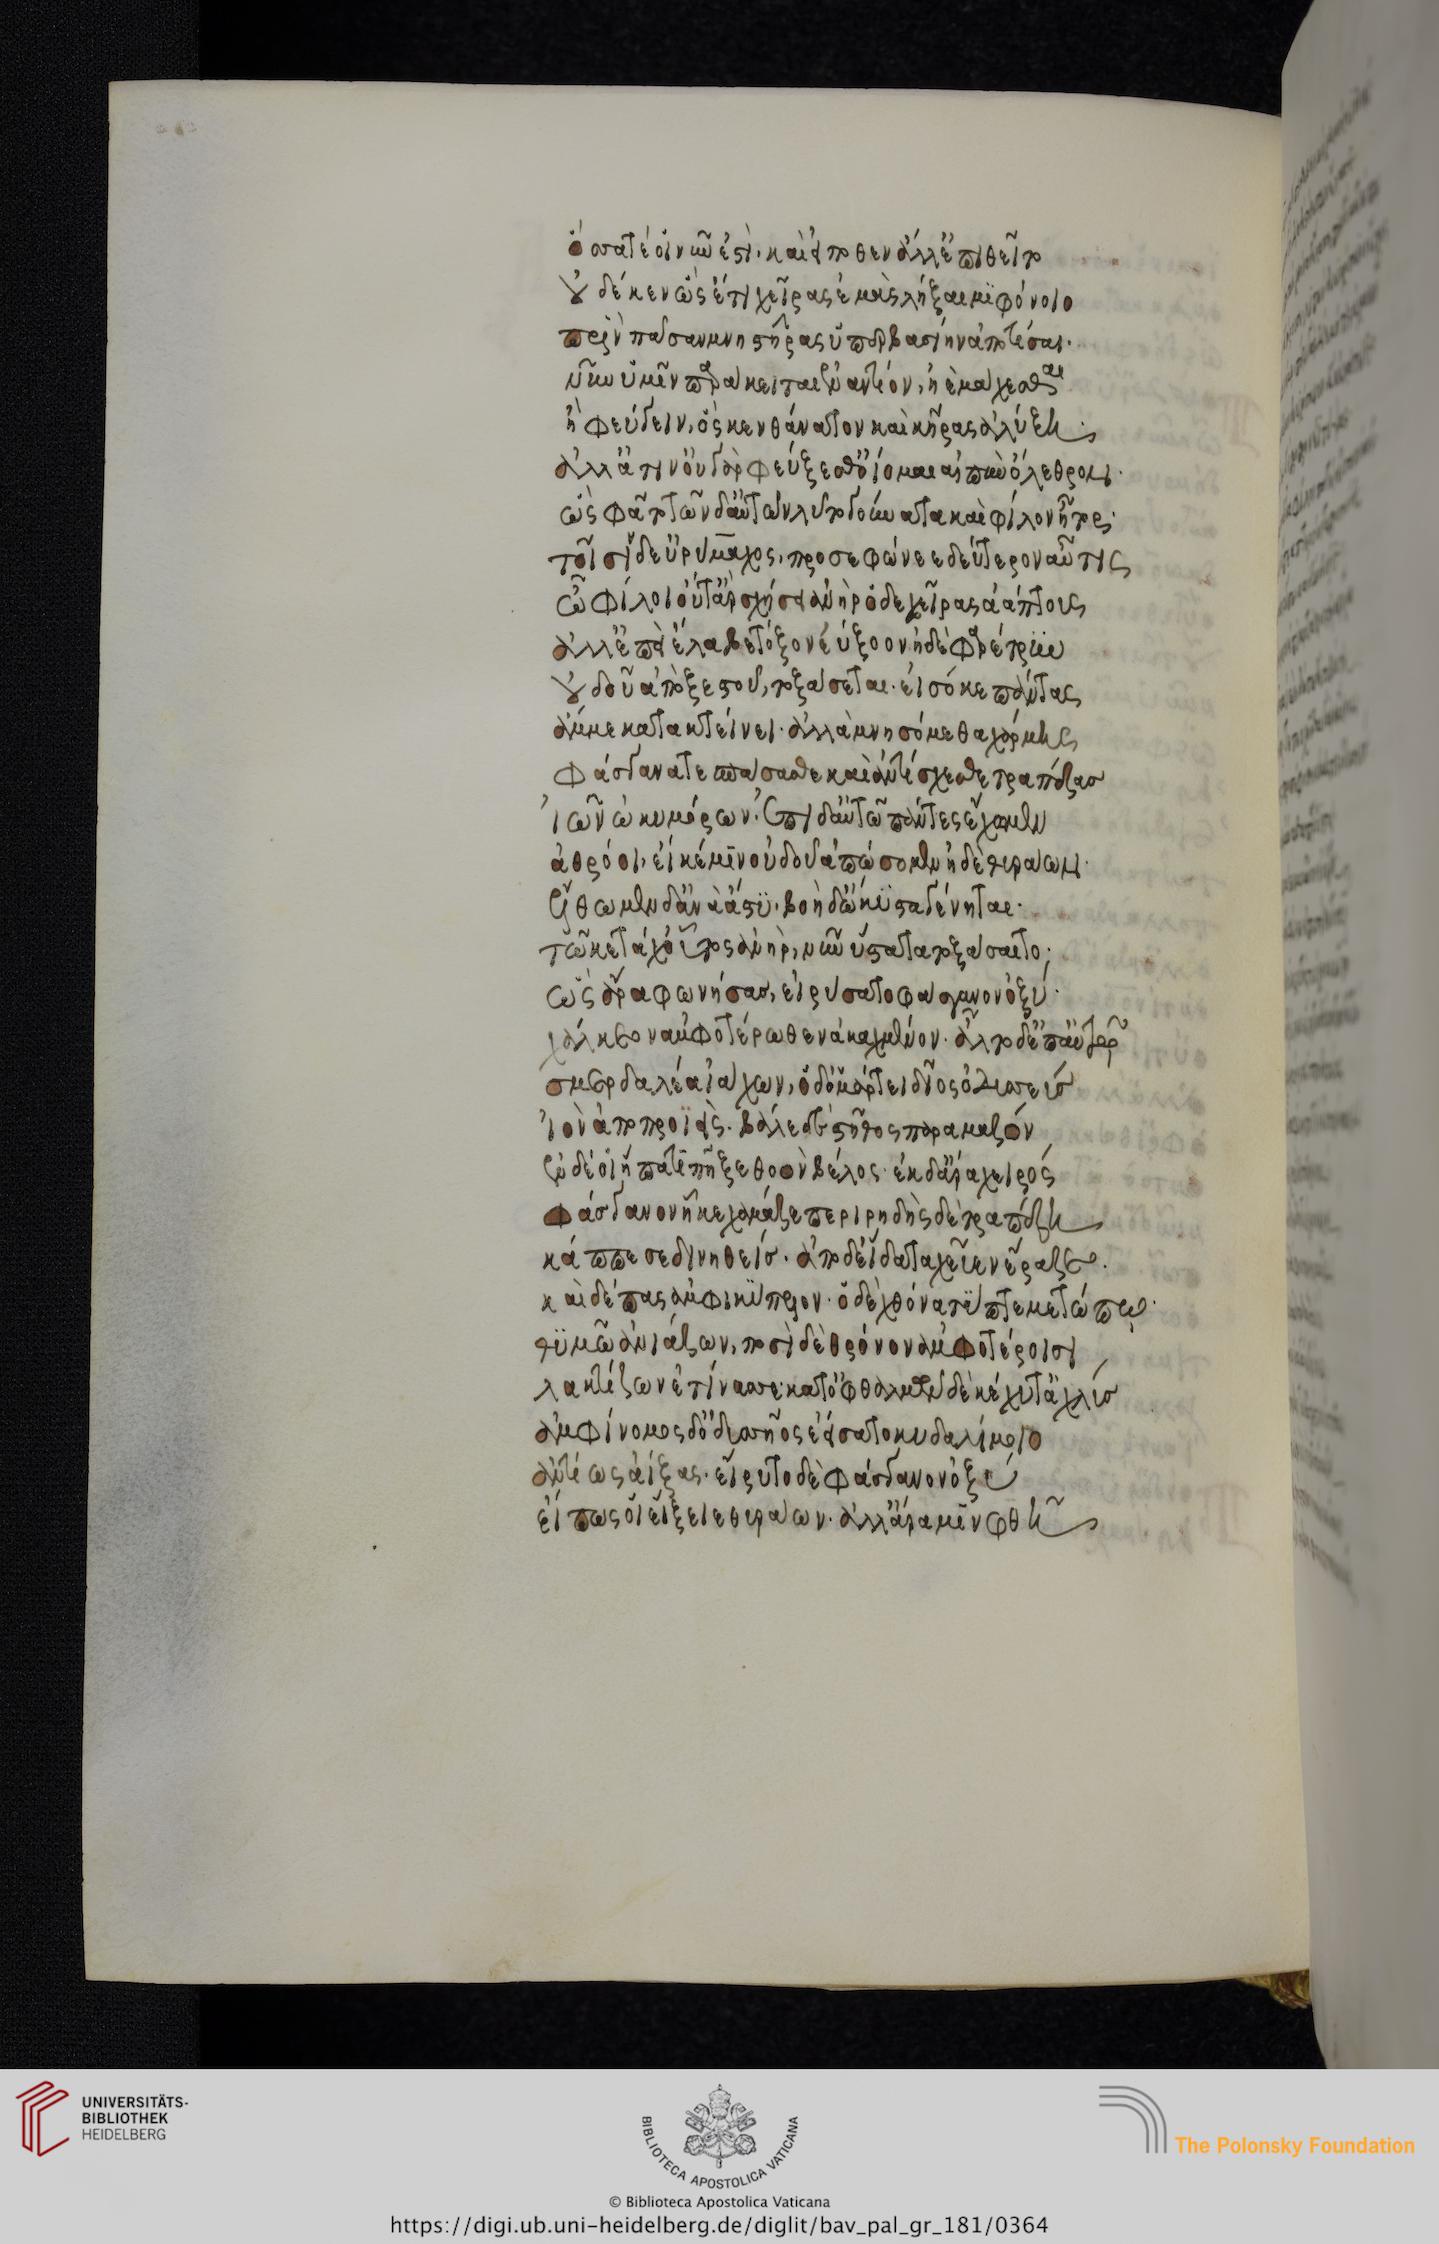 ὅσσά τέ οἱ νῦν ἐστὶ· καὶ εἴ ποθεν ἄλλ' ἐπιθεῖτο
οὐδέ κεν ὣς ἔτι χεῖρας ἐμὰς λήξαιμι φόνοιο
πρὶν πᾶσαν μνηστῆρας ὑπερβασίην ἀποτίσαι.
νῦν ὑμῖν παράκειται ἐναντίον, ἠὲ μάχεσθαι
ἢ φεύγειν, ὅς κεν θάνατον καὶ κῆρας ἀλύξῃ·
ἀλλά τιν' οὐ φεύξεσθ' ὀίομαι αἰπὺν ὄλεθρον·
ὣς φάτο τῶν δ' αὐτῶν λύτο γούνατα καὶ φίλον ἦτορ·
τοῖσιν δ' εὐρύμαχος, προσεφώνεε δεύτερον αὖτις
ὦ φίλοι οὐ γὰρ σχήσει ἀνὴρ ὅδε χεῖρας ἀάπτους
ἀλλ' ἐπεὶ ἔλαβε τόξον ἐύξοον ἠδὲ φαρέτρην
οὐδοῦ ἄπο ξεστοῦ, τοξάσσεται· εἰσόκε πάντας
ἄμμε κατακτείνει· ἀλλὰ μνησόμεθα χάρμης
φάσγανά τε σπάσασθε καὶ ἀντίσχεσθε τραπέζας
ἰῶν ὠκυμόρων· ἐπὶ δ' αὐτῷ πάντες ἔχωμεν
ἀθρόοι, εἴ κέ μιν οὐδοῦ ἀπώσομεν ἠδὲ θυράων·
ἔλθωμεν δ' ἀνὰ ἄστυ· βοὴ δ' ὤκιστα γένηται·
τῷ κε τάχ' οὗτος ἀνὴρ, νῦν ὕστατα τοξάσσαιτο·
ὣς ἄρα φωνήσας, εἰρύσατο φάσγανον ὀξύ·
χάλκεον ἀμφοτέρωθεν ἀκαχμένον· ἆλτο δ' ἐπ' αὐτῷ
σμερδαλέα ἰάχων, ὁ δ' ἁμαρτῆ δῖος ὀδυσσεύς
ἰὸν ἀποπροϊεὶς· βάλε δὲ στῆθος παρὰ μαζόν
ἐν δέ οἱ ἥπατι πῆξε θοὸν βέλος· ἐκ δ' ἄρα χειρός
φάσγανον ἧκε χαμᾶζε περιρηδὴς δὲ τραπέζῃ
κάππεσε δινηθείς· ἀπὸ δ' εἴδατα χεῦεν ἔραζε·
καὶ δέπας ἀμφικύπελλον· ὁ δὲ χθόνα τύπτε μετώπῳ·
θυμῷ ἀνιάζων, ποσὶ δὲ θρόνον ἀμφοτέροισι
λακτίζων ἐτίνασσε· κατ' ὀφθαλμῶν δὲ κέχυτ' ἀχλύς
ἀμφίνομος δ' ὀδυσσῆος ἐείσατο κυδαλίμοιο
ἀντίος ἀίξας· εἴρυτο δὲ φάσγανον ὀξύ
εἴ πως οἱ εἴξειε θυράων· ἀλλ' ἄρα μιν φθῆ
UNIVERSITÄTS-
BIBLIOTHEK
HEIDELBERG
BIBLIOTECA APOSTOLICA VATICANA
The Polonsky Foundation
© Biblioteca Apostolica Vaticana
https://digi.ub.uni-heidelberg.de/diglit/bav_pal_gr_181/0364